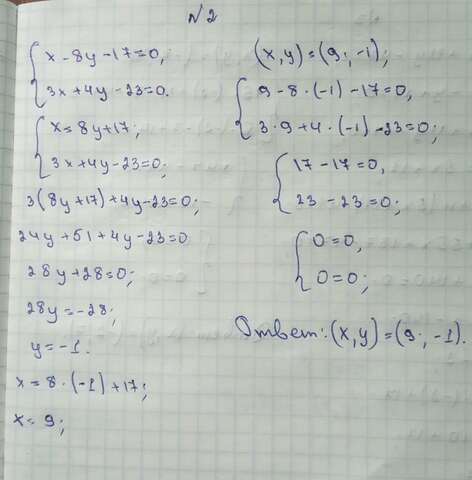 №2
x - 8y - 17 = 0,
3x + 4y - 23 = 0.
x = 8y + 17;
3x + 4y - 23 = 0;
3(8y + 17) + 4y - 23 = 0;
24y + 51 + 4y - 23 = 0
28y + 28 = 0;
28y = -28;
y = -1.
x = 8 · (-1) + 17;
x = 9;
(x, y) = (9; -1);
9 - 8 · (-1) - 17 = 0,
3 · 9 + 4 · (-1) - 23 = 0;
17 - 17 = 0,
23 - 23 = 0;
0 = 0,
0 = 0;
Ответ: (x, y) = (9; -1).